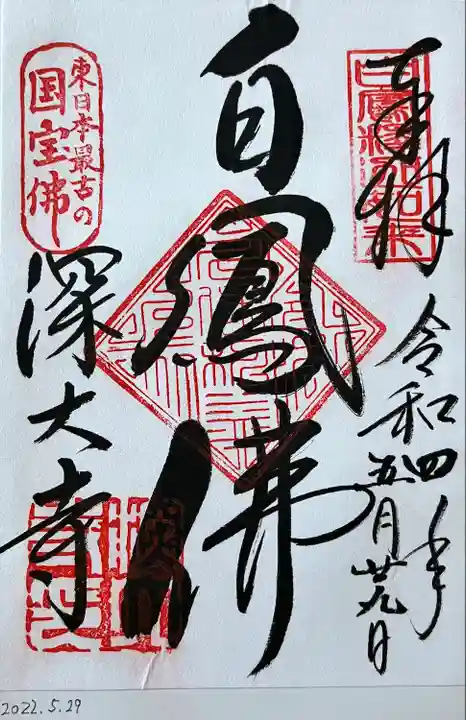 奉拝
令和四年
五月廿九日
白鳳佛
東日本最古の
国宝佛
深大寺
2022.5.29